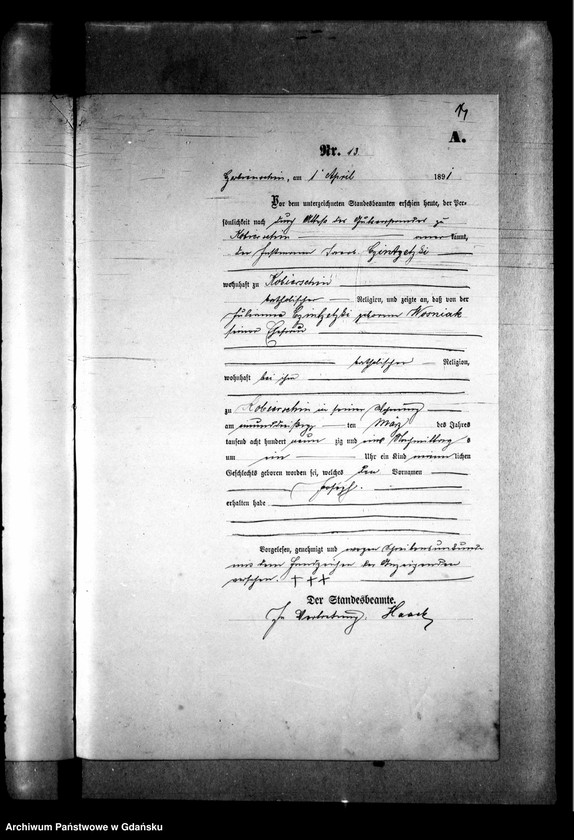 A.
Nr. 13.
am 1 April 1891
Vor dem unterzeichneten Standesbeamten erschien heute, der Per-
sönlichkeit nach durch des zu
Kobierschin kannt,
der Czintzelski
wohnhaft zu Kobierschin
katholischer Religion, und zeigte an, daß von der
Julianna Czintzelski geborene Wosniak
seiner Ehefrau
katholischer Religion,
wohnhaft bei ihm
zu Kobierschin in seiner Wohnung
am ten März des Jahres
tausend acht hundert neun zig und eins Nachmittags
um ein Uhr ein Kind männlichen
Geschlechts geboren worden sei, welches den Vornamen
Joseph.
erhalten habe
Vorgelesen, genehmigt und wegen Schreibensunkunde
mit dem Handzeichen des Anzeigenden
versehen. +++
Der Standesbeamte.
In Vertretung. Haack
Archiwum Państwowe w Gdańsku